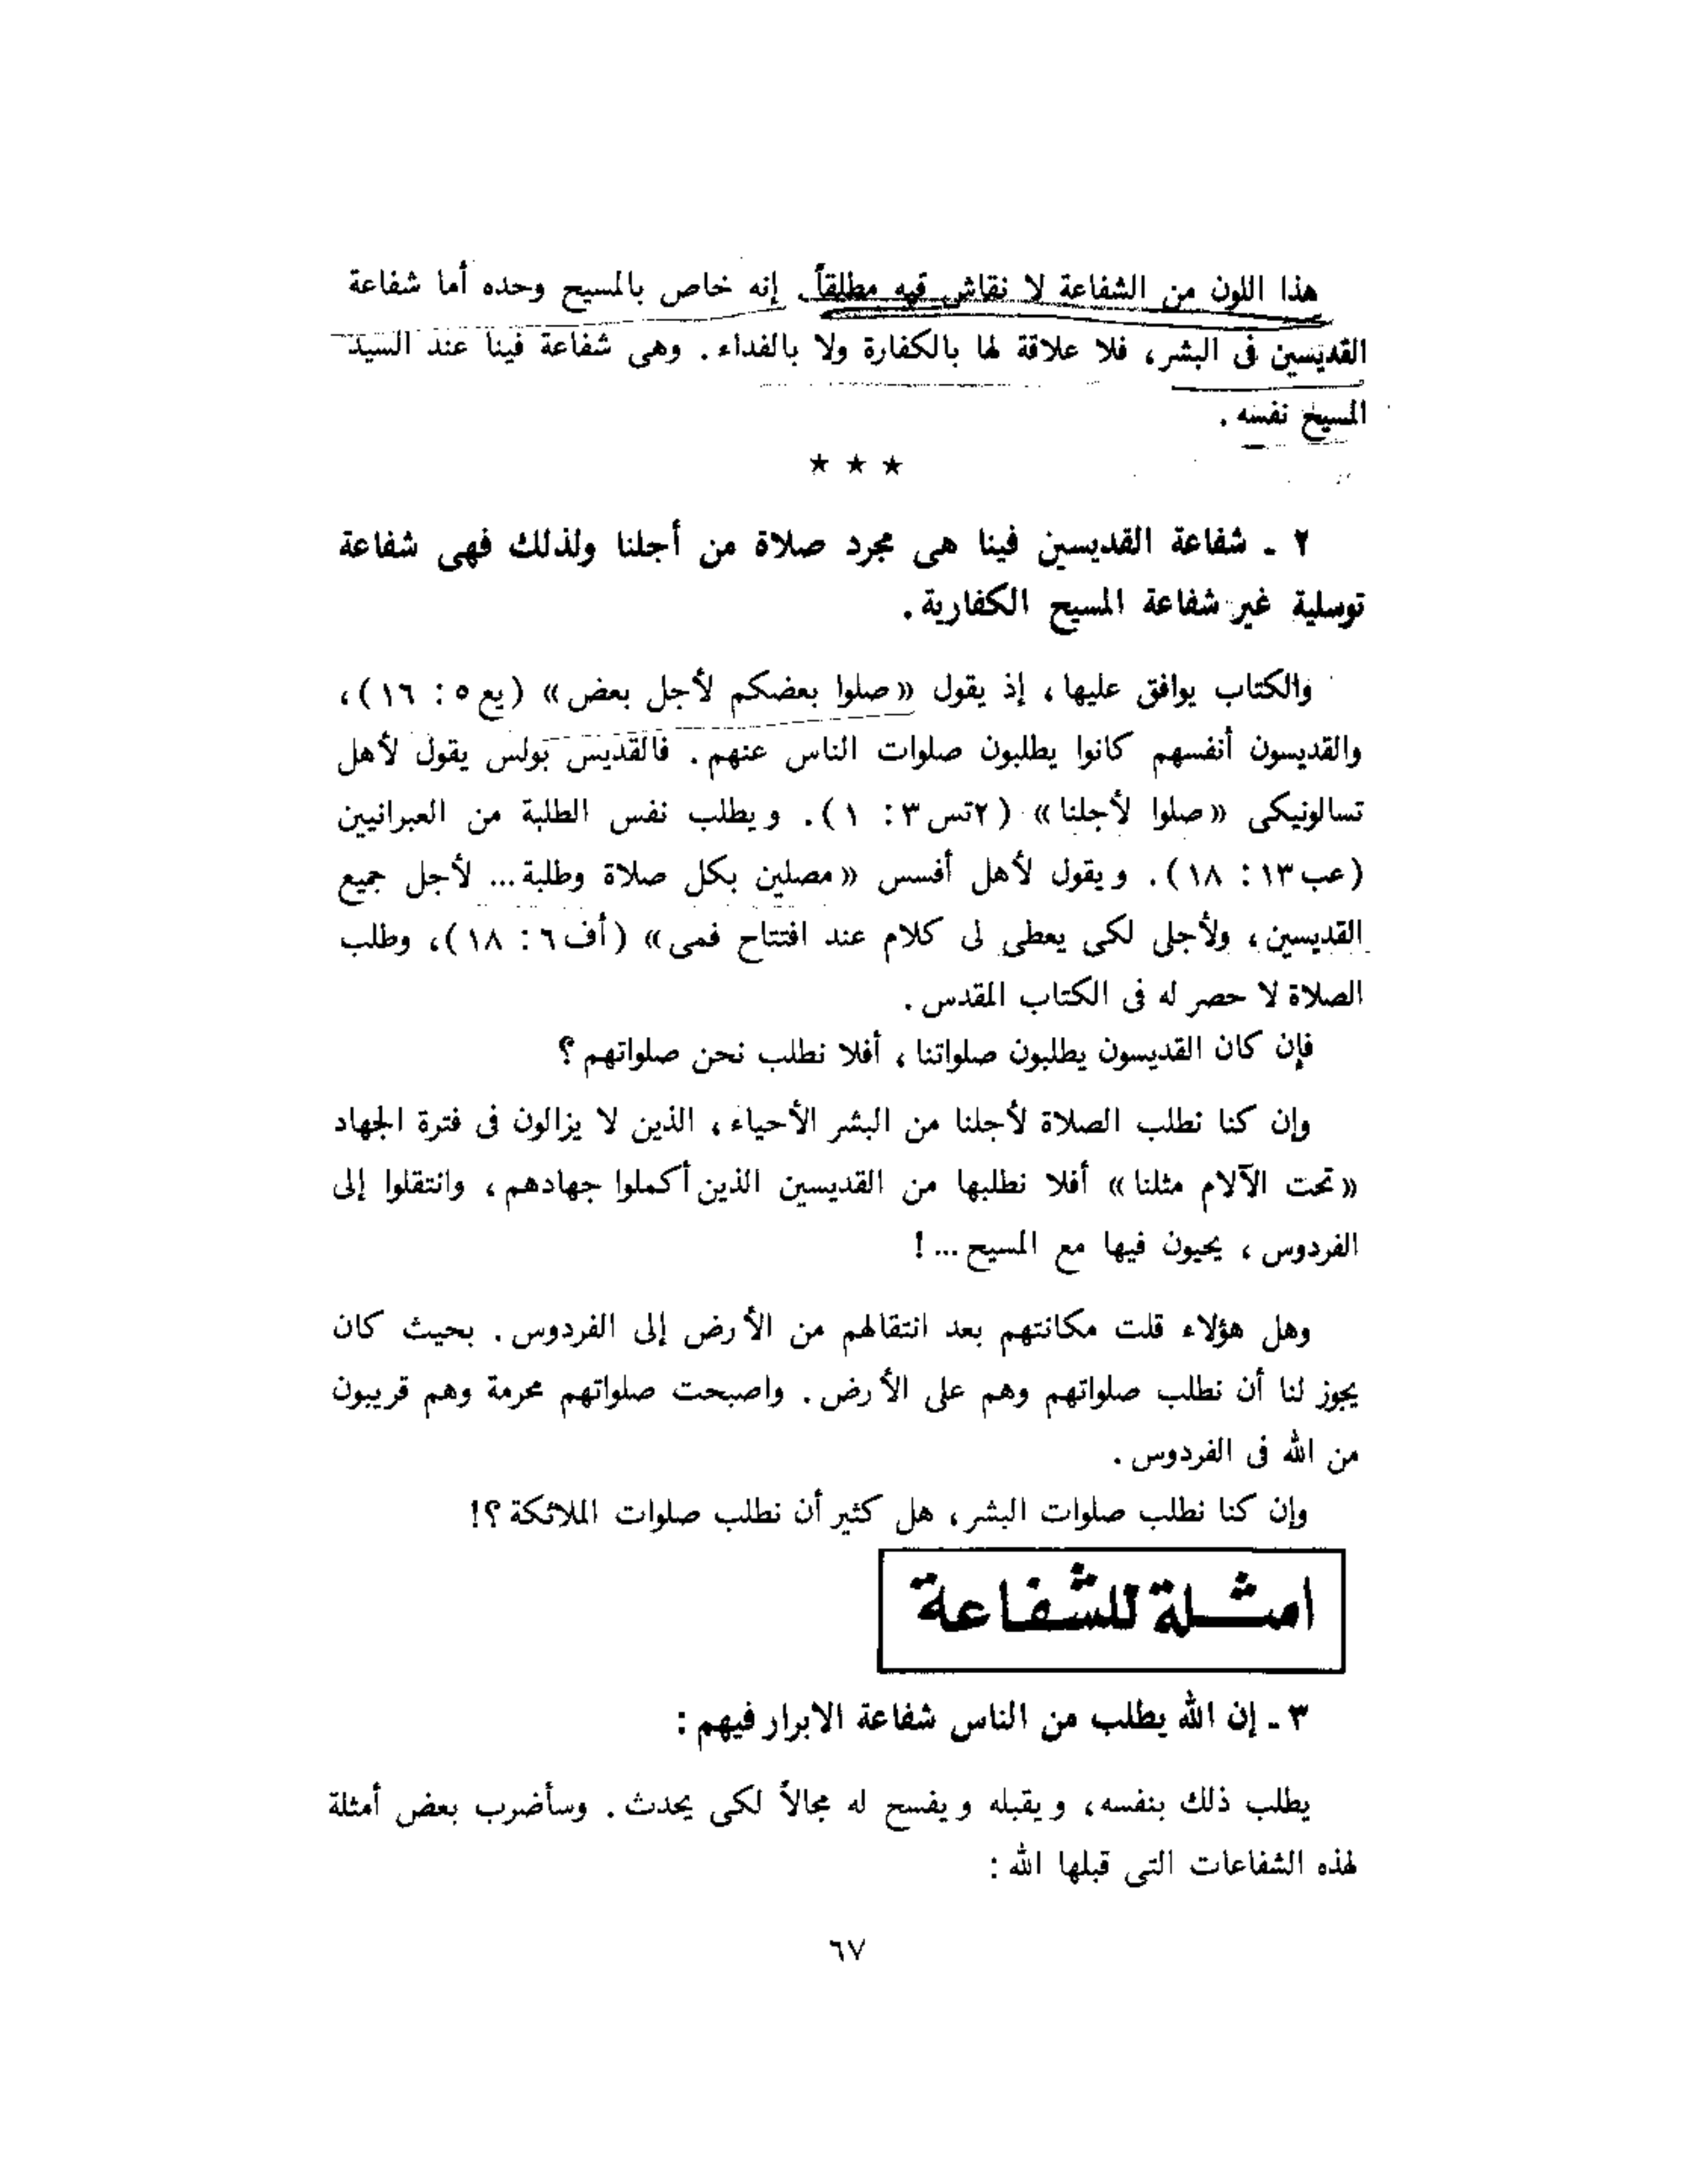 هذا اللون من الشفاعة لا نقاش فيه مطلقاً. إنه خاص بالمسيح وحده أما شفاعة
القديسين فى البشر، فلا علاقة لها بالكفارة ولا بالفداء. وهى شفاعة فينا عند السيد
المسيح نفسه.
★ ★ ★
٢ ـ شفاعة القديسين فينا هى مجرد صلاة من أجلنا ولذلك فهى شفاعة
توسلية غير شفاعة المسيح الكفارية.
والكتاب يوافق عليها، إذ يقول «صلوا بعضكم لأجل بعض» (يع٥: ١٦)،
والقديسون أنفسهم كانوا يطلبون صلوات الناس عنهم. فالقديس بولس يقول لأهل
تسالونيكى «صلوا لأجلنا» (٢تس٣: ١). ويطلب نفس الطلبة من العبرانيين
(عب١٣: ١٨). ويقول لأهل أفسس «مصلين بكل صلاة وطلبة... لأجل جميع
القديسين، ولأجلى لكى يعطى لى كلام عند افتتاح فمى» (أف٦: ١٨)، وطلب
الصلاة لا حصر له فى الكتاب المقدس.
فإن كان القديسون يطلبون صلواتنا، أفلا نطلب نحن صلواتهم؟
وإن كنا نطلب الصلاة لأجلنا من البشر الأحياء، الذين لا يزالون فى فترة الجهاد
«تحت الآلام مثلنا» أفلا نطلبها من القديسين الذين أكملوا جهادهم، وانتقلوا إلى
الفردوس، يحيون فيها مع المسيح...!
وهل هؤلاء قلت مكانتهم بعد انتقالهم من الأرض إلى الفردوس. بحيث كان
يجوز لنا أن نطلب صلواتهم وهم على الأرض. واصبحت صلواتهم محرمة وهم قريبون
من الله فى الفردوس.
وإن كنا نطلب صلوات البشر، هل كثير أن نطلب صلوات الملائكة؟!
امثلة للشفاعة
٣ ـ إن الله يطلب من الناس شفاعة الابرار فيهم:
يطلب ذلك بنفسه، ويقبله ويفسح له مجالاً لكى يحدث. وسأضرب بعض أمثلة
لهذه الشفاعات التى قبلها الله:
٦٧